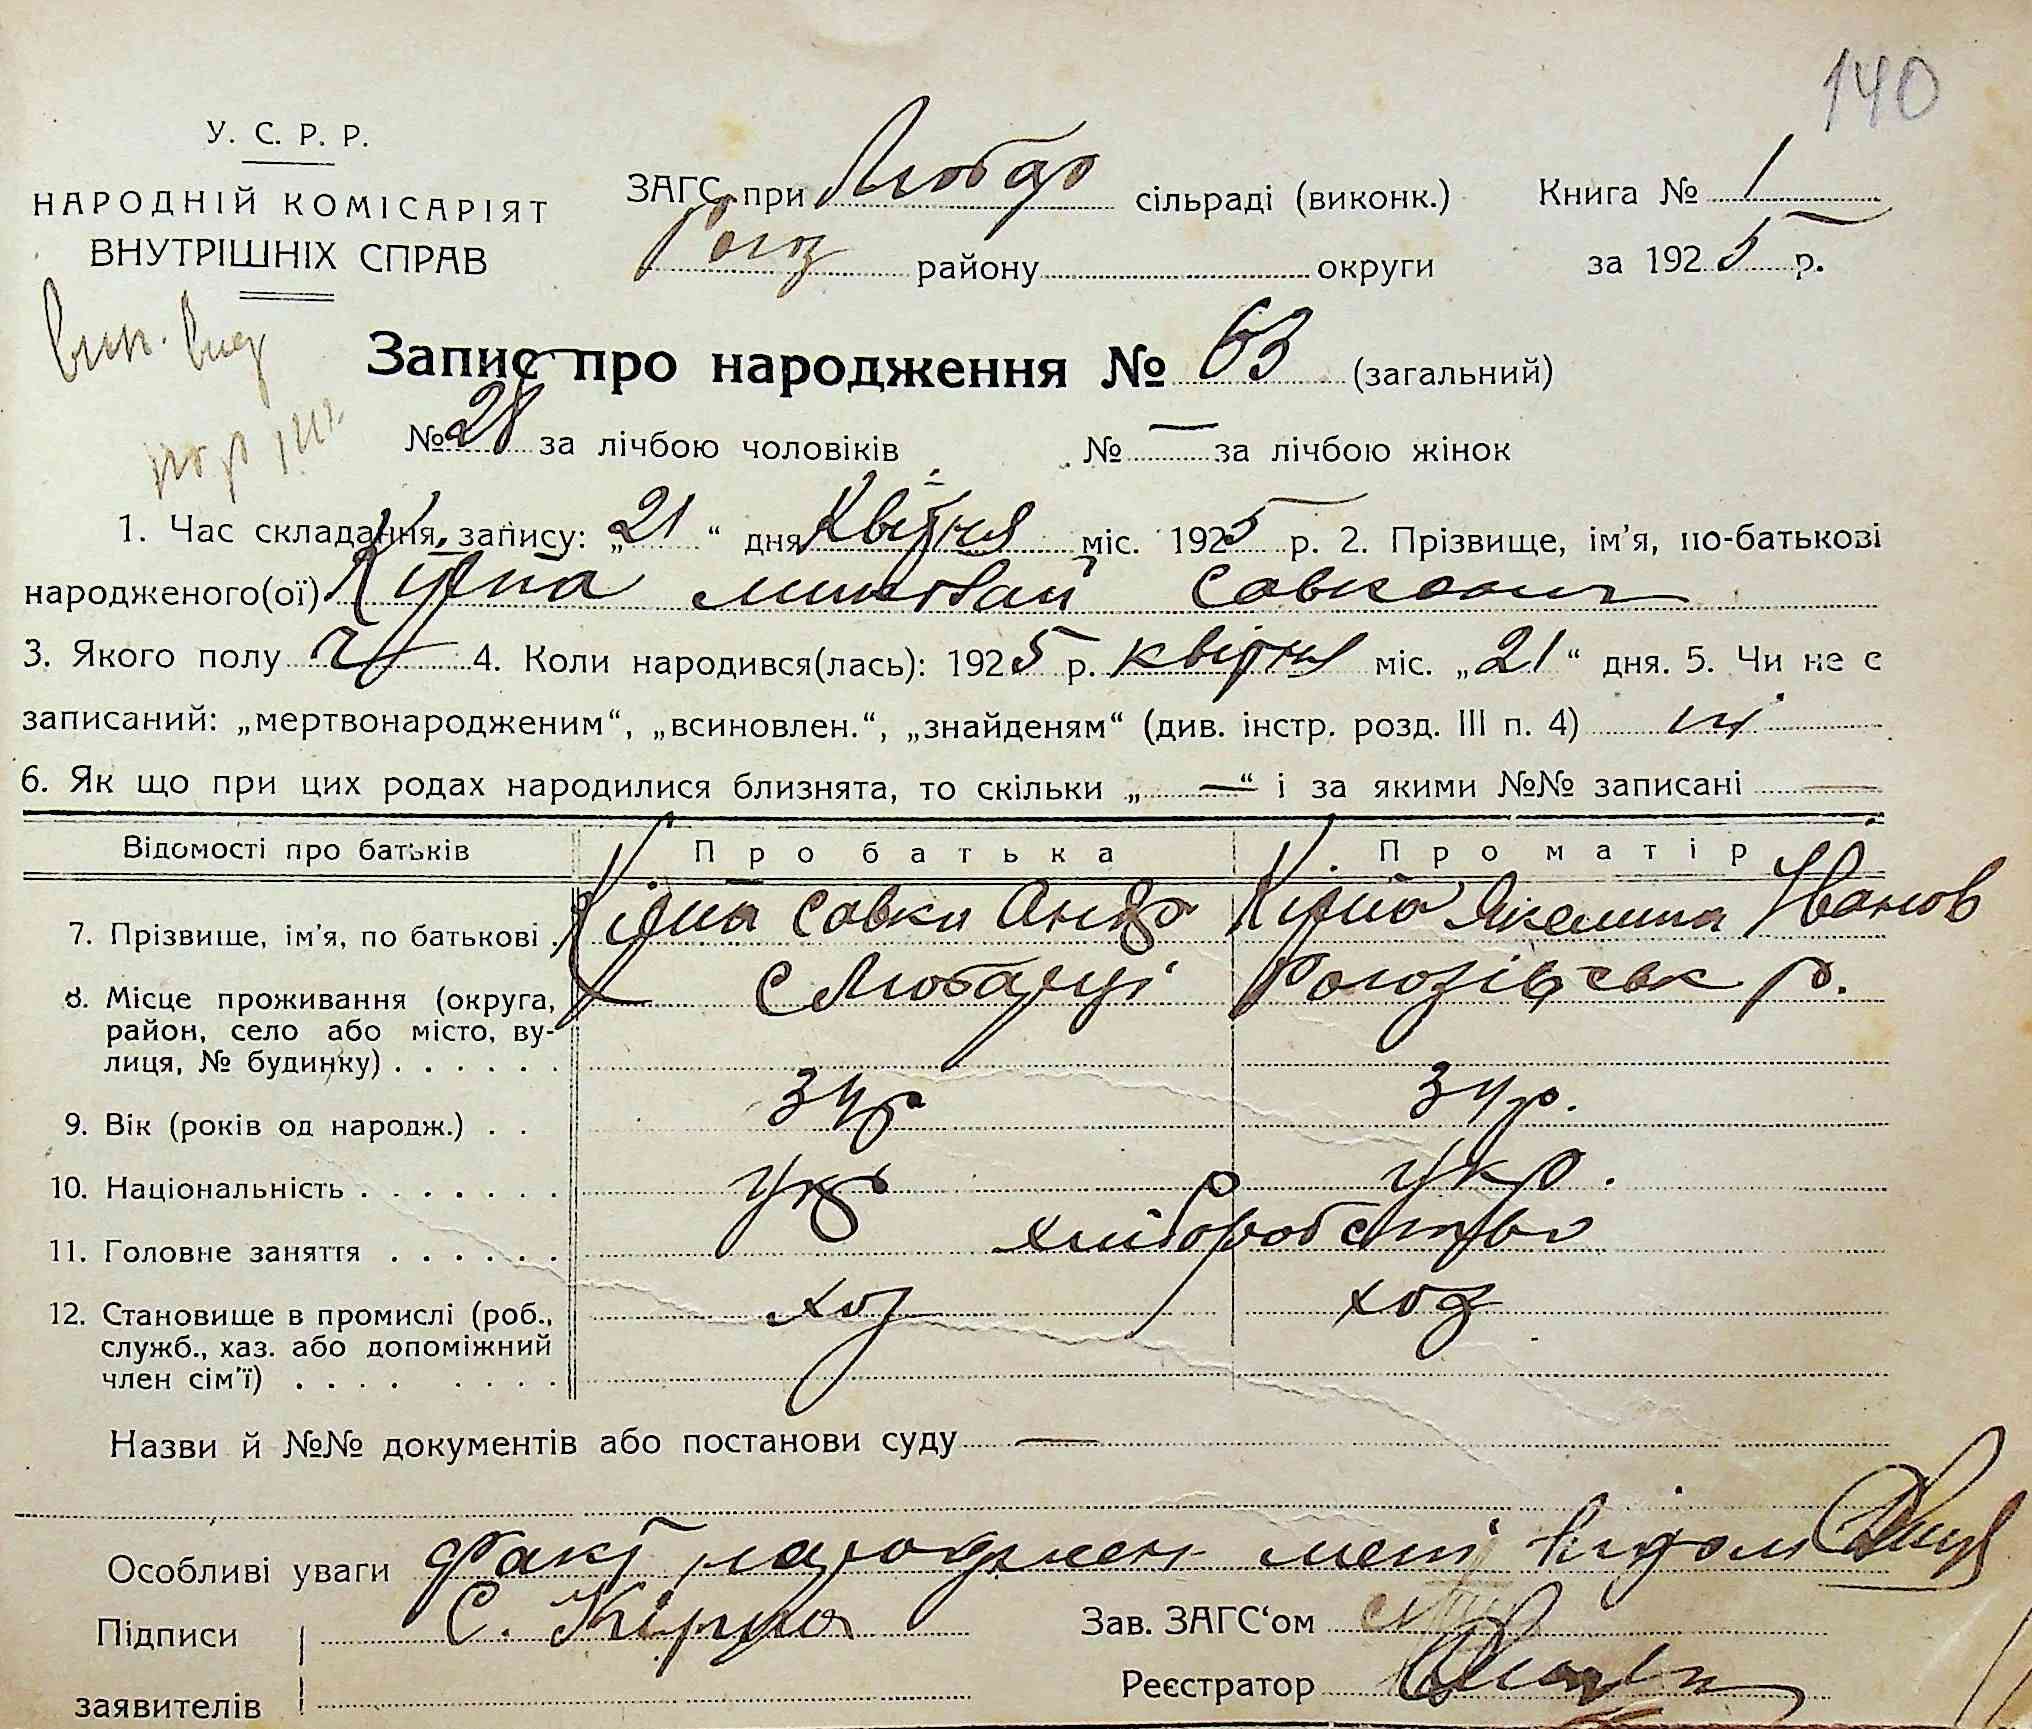 140
У. С. Р. Р.
НАРОДНІЙ КОМІСАРІЯТ
ВНУТРІШНІХ СПРАВ
ЗАГС при Любар сільраді (виконк.) Книга № 1
Рогоз району округи за 1925 р.
Запис про народження № 63 (загальний)
№ 28 за лічбою чоловіків № — за лічбою жінок
1. Час складання запису: „21“ дня Квітня міс. 1925 р. 2. Прізвище, ім'я, по-батькові
народженого(ої) Кірпа Миколай Савкович
3. Якого полу ч 4. Коли народився(лась): 1925 р. квітня міс. „21“ дня. 5. Чи не є
записаний: „мертвонародженим“, „всиновлен.“, „знайденям“ (див. інстр. розд. III п. 4) ні
6. Як що при цих родах народилися близнята, то скільки „—“ і за якими №№ записані —
Відомості про батьків Про батька Про матір
7. Прізвище, ім'я, по батькові Кірпа Савка Андр Кірпа Якелина Іванов
8. Місце проживання (округа, район, село або місто, вулиця, № будинку) с Любарці Рогозівськ р.
9. Вік (років од народж.) 34 р 34 р.
10. Національність укр укр.
11. Головне заняття хліборобство
12. Становище в промислі (роб., служб., хаз. або допоміжний член сім'ї) хоз хоз
Назви й №№ документів або постанови суду —
Особливі уваги Факт народжен мені видом
Підписи С. Кірпа Зав. ЗАГС'ом
заявителів Реєстратор